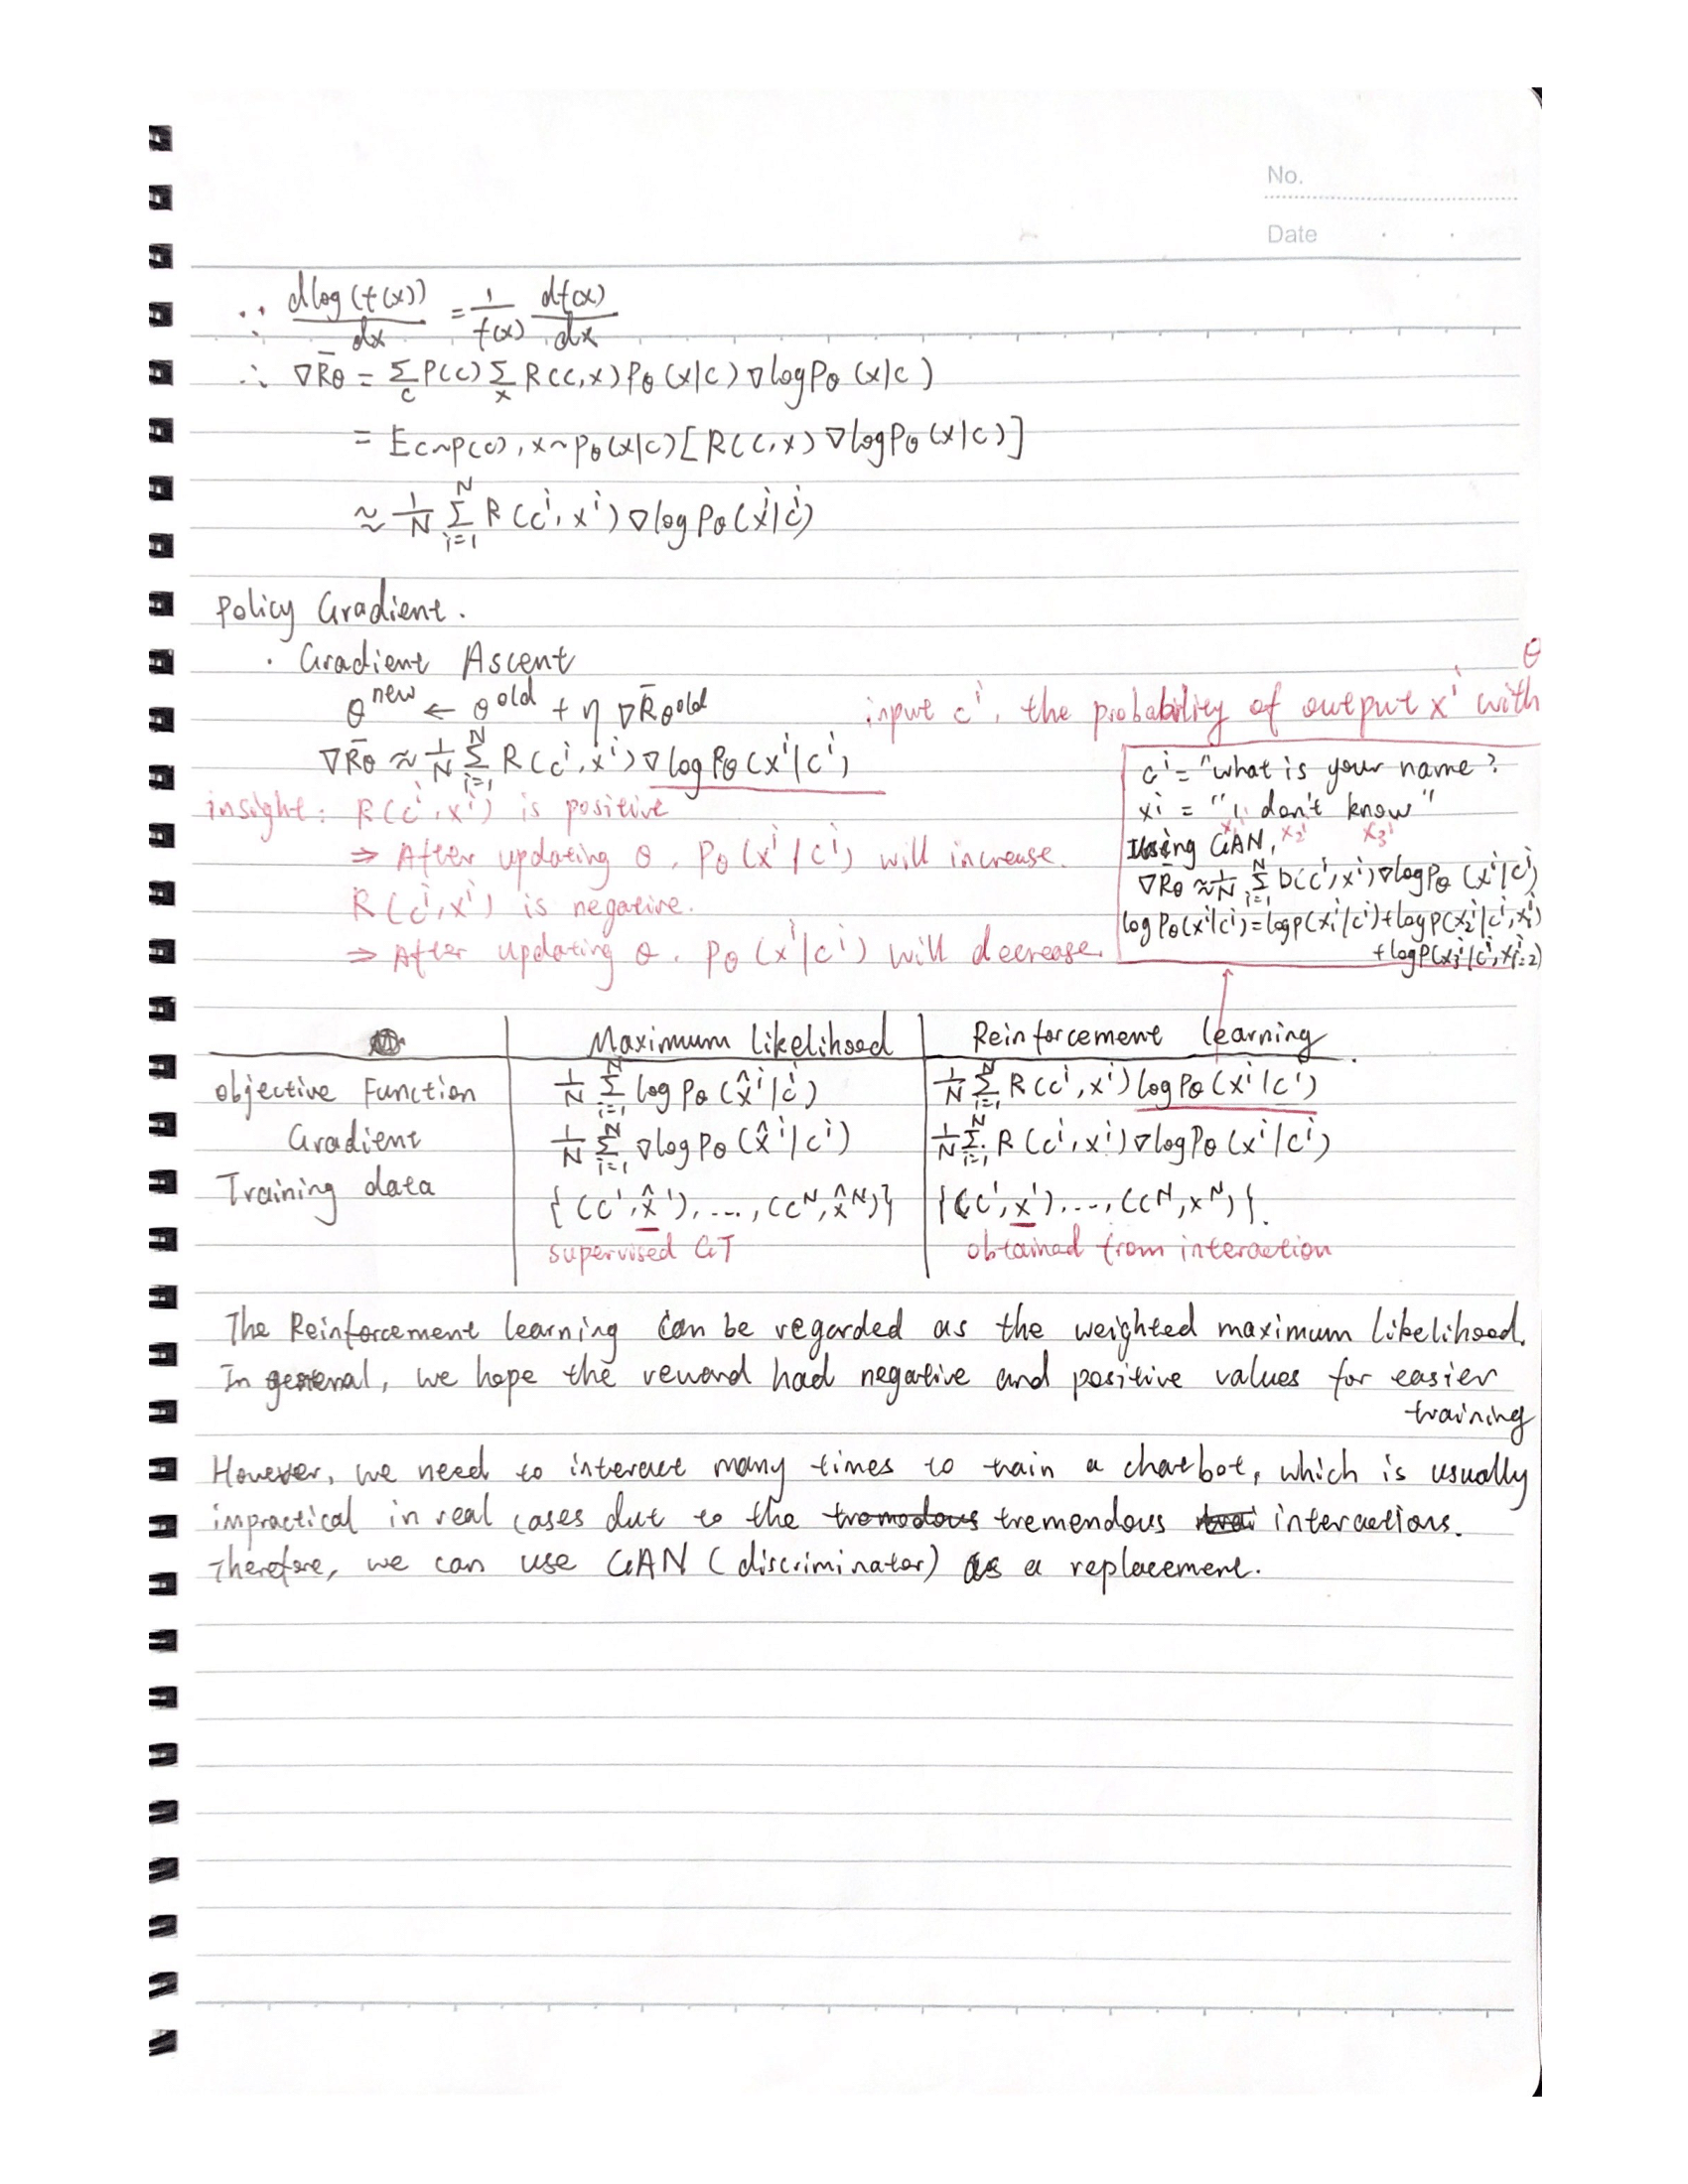 No.
Date
∵ dlog(f(x))/dx = 1/f(x) df(x)/dx
∴ ∇R̄θ = Σ_c P(c) Σ_x R(c,x) Pθ(x|c) ∇logPθ(x|c)
= E_{c~P(c), x~Pθ(x|c)} [R(c,x) ∇logPθ(x|c)]
≈ 1/N Σ_{i=1}^{N} R(c^i, x^i) ∇logPθ(x^i|c^i)
Policy Gradient.
· Gradient Ascent
θ^new ← θ^old + η ∇R̄θ^old
input c^i, the probability of output x^i with θ
∇R̄θ ≈ 1/N Σ_{i=1}^{N} R(c^i, x^i) ∇logPθ(x^i|c^i)
insight: R(c^i, x^i) is positive
⇒ After updating θ, Pθ(x^i|c^i) will increase.
R(c^i, x^i) is negative.
⇒ After updating θ, Pθ(x^i|c^i) will decrease.
c^i = "what is your name?
x^i = "I don't know"
x_1^i x_2^i x_3^i
Using GAN,
∇R̄θ ≈ 1/N Σ_{i=1}^{N} D(c^i, x^i) ∇logPθ(x^i|c^i)
logPθ(x^i|c^i) = logP(x_1^i|c^i) + logP(x_2^i|c^i, x_1^i)
+ logP(x_3^i|c^i, x_{1:2}^i)
Maximum Likelihood Reinforcement learning
objective Function 1/N Σ_{i=1}^{N} logPθ(x̂^i|c^i) 1/N Σ_{i=1}^{N} R(c^i, x^i) logPθ(x^i|c^i)
Gradient 1/N Σ_{i=1}^{N} ∇logPθ(x̂^i|c^i) 1/N Σ_{i=1}^{N} R(c^i, x^i) ∇logPθ(x^i|c^i)
Training data {(c^1, x̂^1), ..., (c^N, x̂^N)} {(c^1, x^1), ..., (c^N, x^N)}.
supervised GT obtained from interaction
The Reinforcement learning can be regarded as the weighted maximum likelihood.
In general, we hope the reward had negative and positive values for easier
training
However, we need to interact many times to train a chatbot, which is usually
impractical in real cases due to the tremodous tremendous interactions.
Therefore, we can use GAN (discriminator) as a replacement.